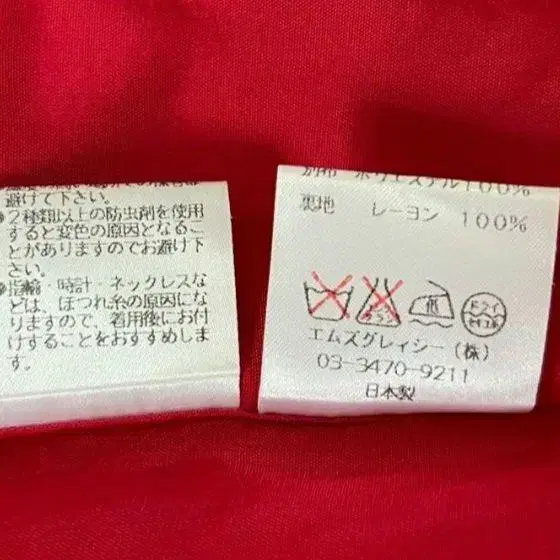 避けて下さい。
●2種類以上の防虫剤を使用
すると変色の原因となるこ
とがありますのでお避け下
さい。
●指輪・時計・ネックレスな
どは、ほつれ糸の原因にな
りますので、着用後にお付
けすることをおすすめしま
す。
別布 ポリエステル100%
裏地 レーヨン 100%
エンソ
サラシ
低
ドライ
セキユ系
エムズグレイシー(株)
03-3470-9211
日本製